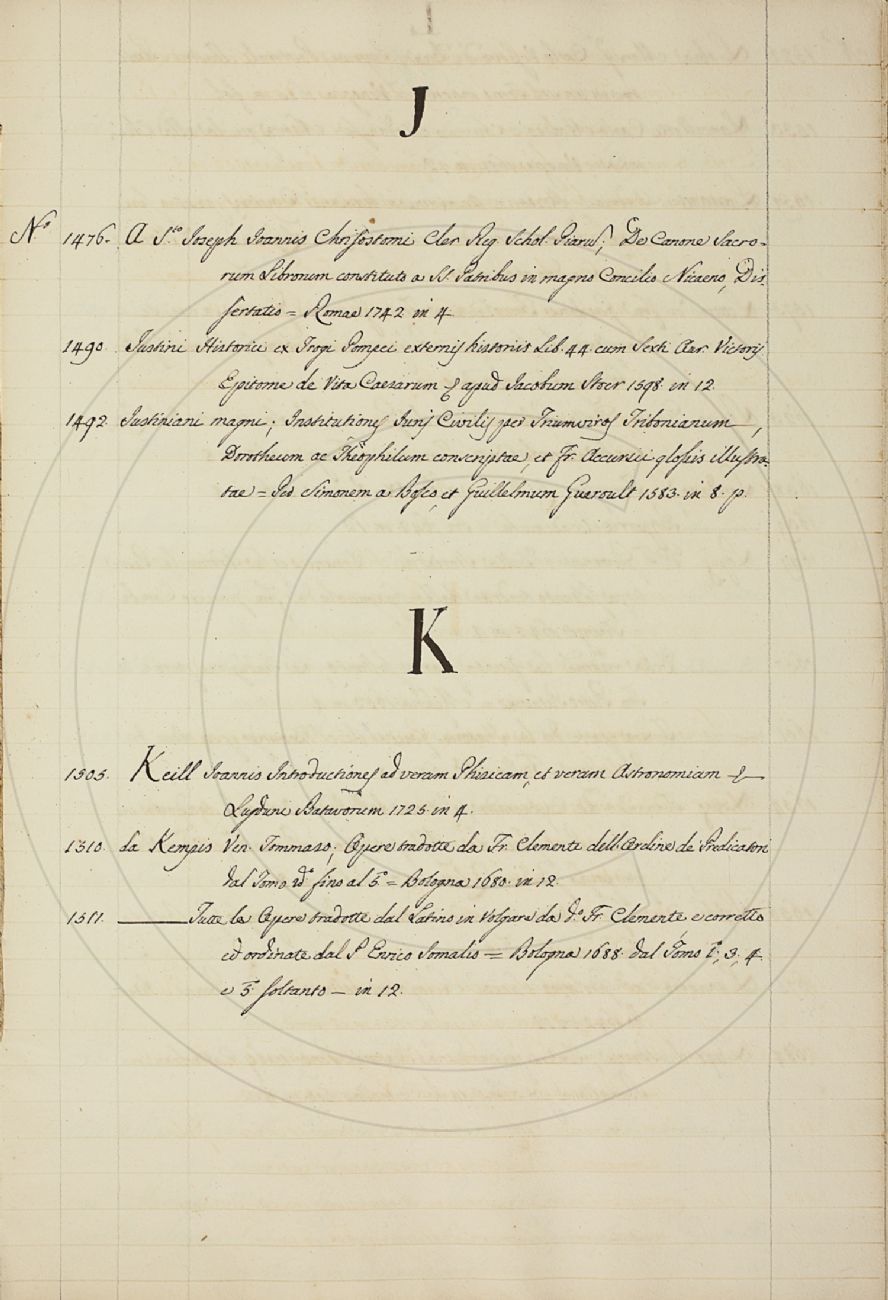 J
N.º 1476. A S.to Joseph Joannis Chrisostomi Cler. Reg. Schol. Piarus; De Canone Sacro-
rum Librorum constituto a SS. Patribus in magno Concilio Nicaeno, Dis
sertatio = Romae 1742 in 4
1490. Justini Historici ex Trogi Pompei externis historiis Lib. 44. cum Sexti Aur. Victoris
Epitome de Vita Caesarum & apud Jacobum Stoer 1598. in 12.
1492. Justiniani magni; Institutiones Juris Civilis per Triumviros Tribonianum,
Dorotheum ac Theophilum conscriptae, et Fr. Accursii glossis illustra-
tae = Simonem a Bosco, et Guillelmum Gueroult 1583. in 8. p.
K
1505. Keill Joannis Introductiones ad veram Phisicam, et veram Astronomiam &
Lugduni Batavorum 1725. in 4.
1510. da Kempis Ven. Tommaso; Opere tradotte da Fr. Clemente dell'Ordine de' Predicatori
dal Tomo 2.º fino al 5.º = Bologna 1680. in 12.
1511. ——— Tutte le Opere tradotte dal Latino in Volgare da d.º Fr. Clemente, e corrette
ed ordinate dal P. Enrico Somalio = Bologna 1688. dal Tomo 1.º, 3, 4
e 5. soltanto — in 12.